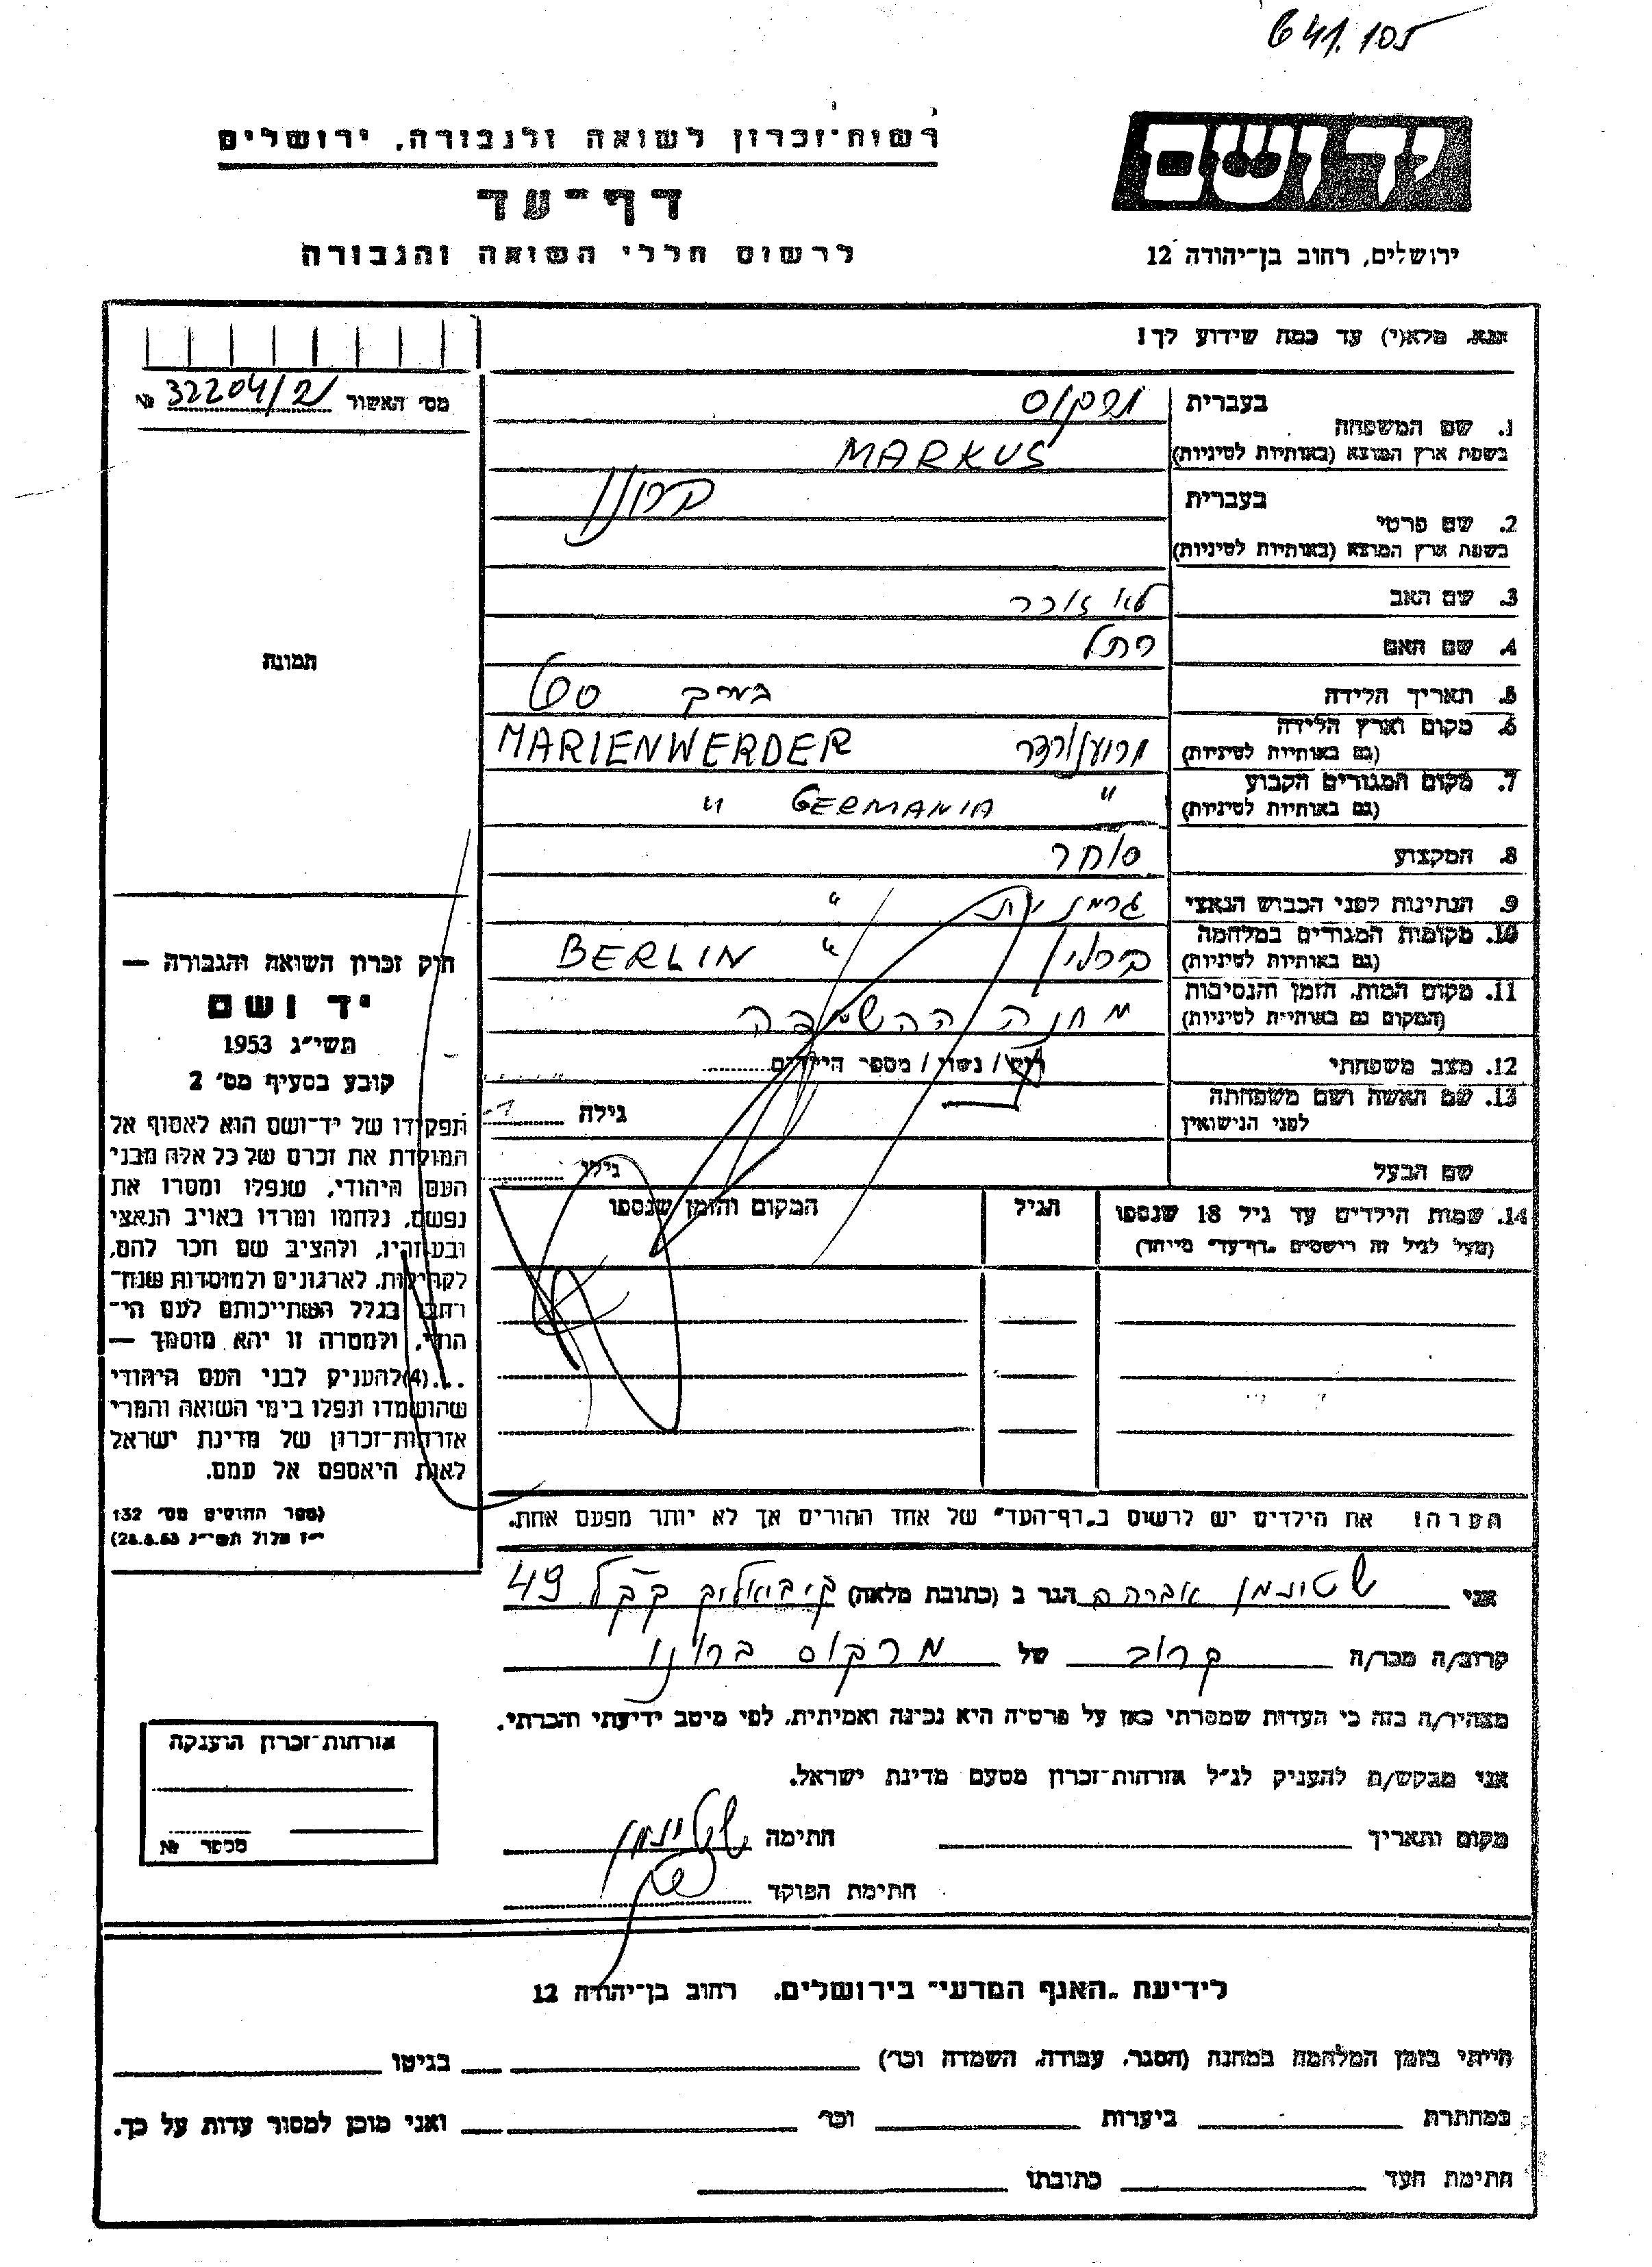 641.105
יד ושם
ירושלים, רחוב בן־יהודה 12
רשות־זכרון לשואה ולגבורה, ירושלים
דף־עד
לרשום חללי השואה והגבורה
אנא, מלא(י) עד כמה שידוע לך!
מס׳ האשור № 32204/21
1. שם המשפחה
בעברית מרקוס
בשפת ארץ המוצא (באותיות לטיניות) MARKUS
2. שם פרטי
בעברית ברונו
בשפת ארץ המוצא (באותיות לטיניות)
3. שם האב
4. שם האם רחל
5. תאריך הלידה
6. מקום וארץ הלידה
(גם באותיות לטיניות) MARIENWERDER
7. מקום המגורים הקבוע
(גם באותיות לטיניות) " GERMANIA "
8. המקצוע סוחר
9. הנתינות לפני הכבוש הנאצי גרמנית "
10. מקומות המגורים במלחמה
(גם באותיות לטיניות) ברלין " BERLIN
11. מקום המות, הזמן והנסיבות
(המקום גם באותיות לטיניות) מחנה ההשמדה
12. מצב משפחתי רווק / נשוי / מספר הילדים
13. שם האשה ושם משפחתה
לפני הנישואין
גילה
שם הבעל
גילו
14. שמות הילדים עד גיל 18 שנספו
(מעל לגיל זה רושמים „דף־עד״ מיוחד)
הגיל
המקום והזמן שנספו
הערה! את הילדים יש לרשום ב„דף־העד״ של אחד ההורים אך לא יותר מפעם אחת.
תמונה
חוק זכרון השואה והגבורה —
יד ושם
תשי״ג 1953
קובע בסעיף מס׳ 2
תפקידו של יד־ושם הוא לאסוף אל
המולדת את זכרם של כל אלה מבני
העם היהודי, שנפלו ומסרו את
נפשם, נלחמו ומרדו באויב הנאצי
ובעוזריו, ולהציב שם וזכר להם,
לקהילות, לארגונים ולמוסדות שנח־
רבו בגלל השתייכותם לעם הי־
הודי, ולמטרה זו יהא מוסמך —
...(4)להעניק לבני העם היהודי
שהושמדו ונפלו בימי השואה והמרי
אזרחות־זכרון של מדינת ישראל
לאות היאספם אל עמם.
(ספר החוקים מס׳ 132
י״ז אלול תשי״ג 28.8.53)
אני שטינמן אברהם הגר ב (כתובת מלאה) ק. ביאליק קק״ל 49
קרוב/ה מכר/ה קרוב של מרקוס ברונו
מצהיר/ה בזה כי העדות שמסרתי כאן על פרטיה היא נכונה ואמיתית, לפי מיטב ידיעתי והכרתי.
אני מבקש/ת להעניק לנ״ל אזרחות־זכרון מטעם מדינת ישראל.
מקום ותאריך חתימה שטינמן
חתימת הפוקד
אזרחות־זכרון הוענקה
מספר №
לידיעת „האגף המדעי״ בירושלים, רחוב בן־יהודה 12
הייתי בזמן המלחמה במחנה (הסגר, עבודה, השמדה וכו׳) בגיטו
במחתרת ביערות וכו׳ ואני מוכן למסור עדות על כך.
חתימת העד כתובתו